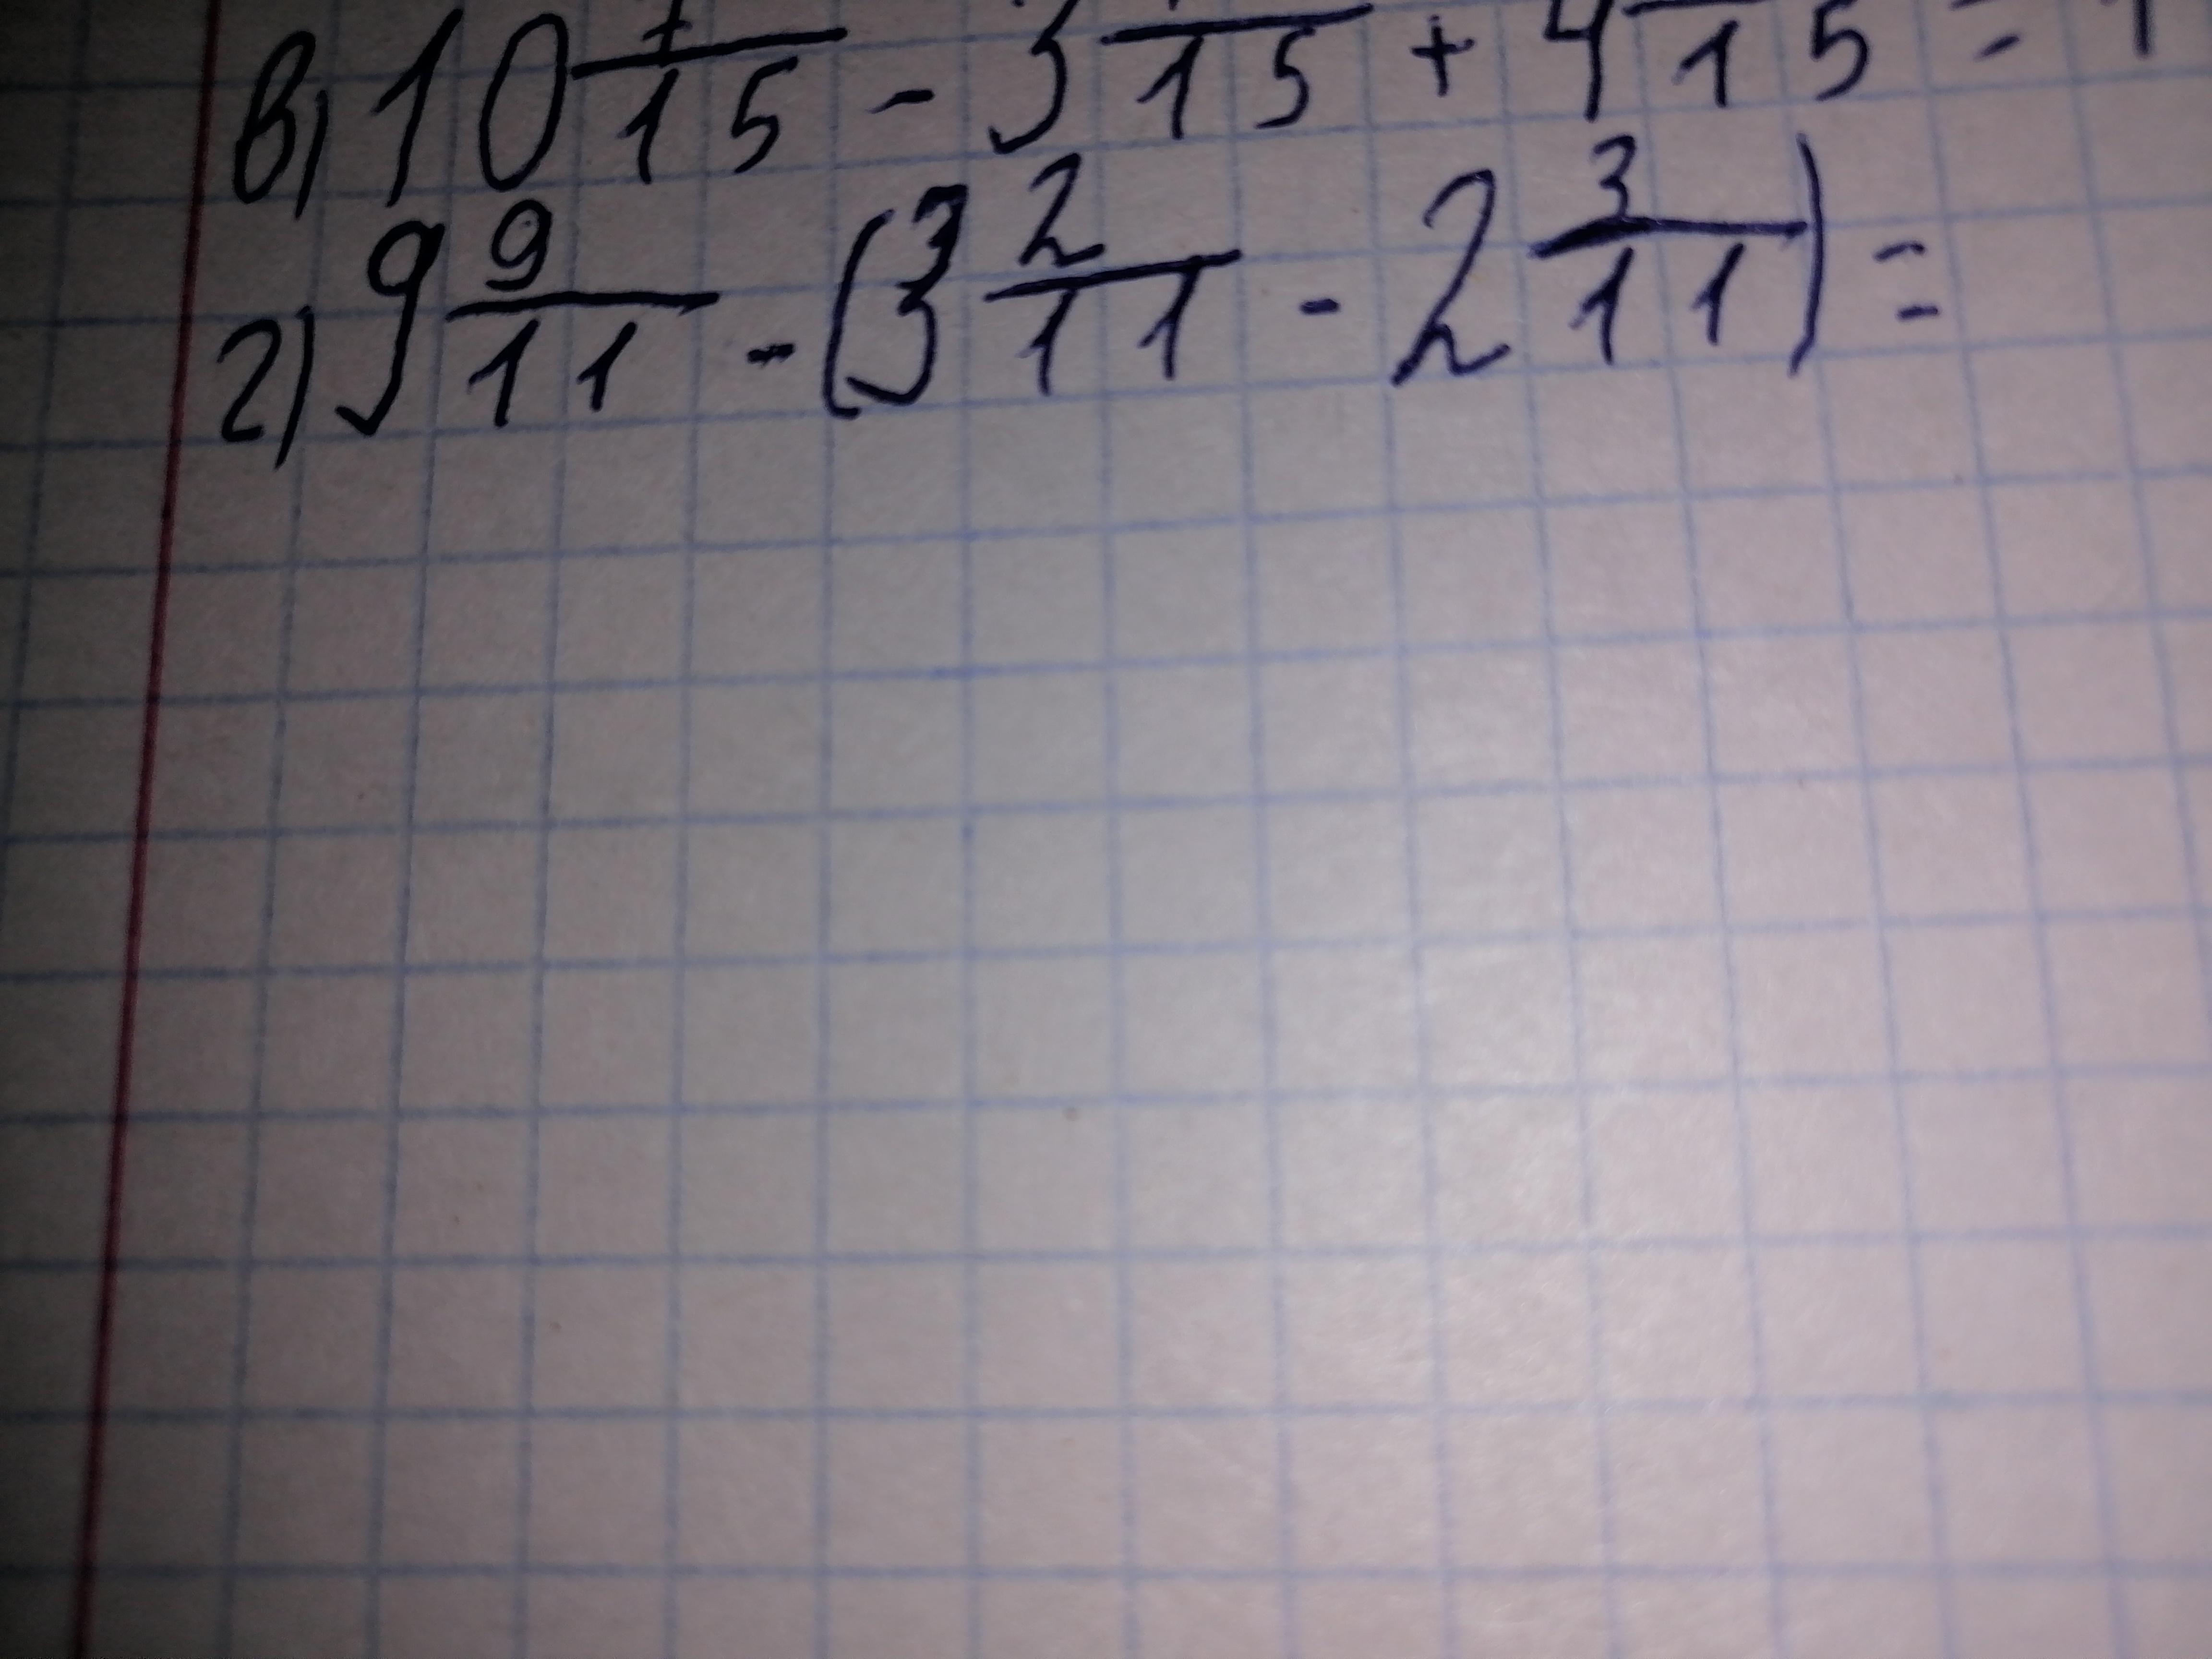 в) 10 /15 - 3 /15 + 4 /15 =
г) 9 9/11 - (3 2/11 - 2 3/11) =